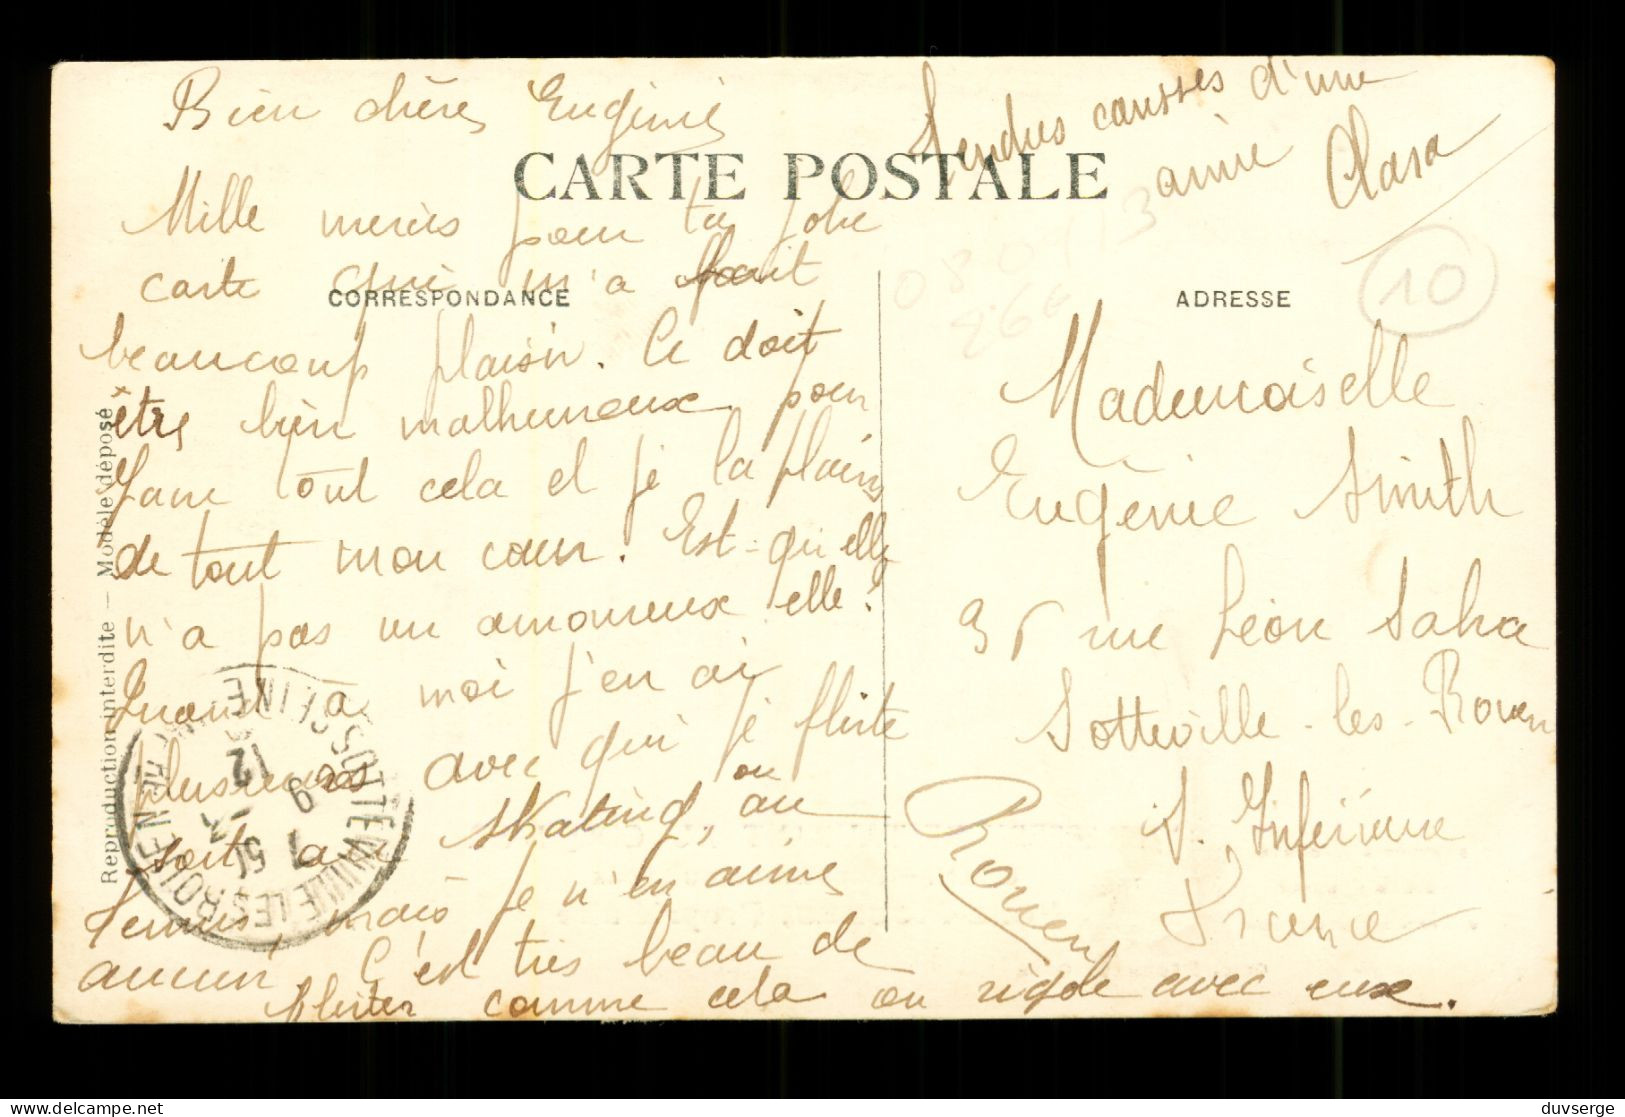 Bien chère Eugénie
Tendres causses d'une
amie Clara
CARTE POSTALE
Mille mercis pour ta jolie
carte qui m'a fait
CORRESPONDANCE
beaucoup plaisir. Ce doit
être bien malheureux pour
Jane tout cela et je la plains
de tout mon cœur. Est-qu'elle
n'a pas un amoureux elle?
Quand à moi j'en ai
plusieurs avec qui je flirte
soit à skating, ou au
tennis, mais je n'en aime
aucun. C'est très beau de
flirter comme cela on rigole avec eux.
Reproduction interdite — Modèle déposé
ADRESSE
10
Mademoiselle
Eugénie Smith
rue Léon Salva
Sotteville-les-Rouen
S. Inférieure
France
Rouen
SOTTEVILLE-LES-ROUEN
duvserge